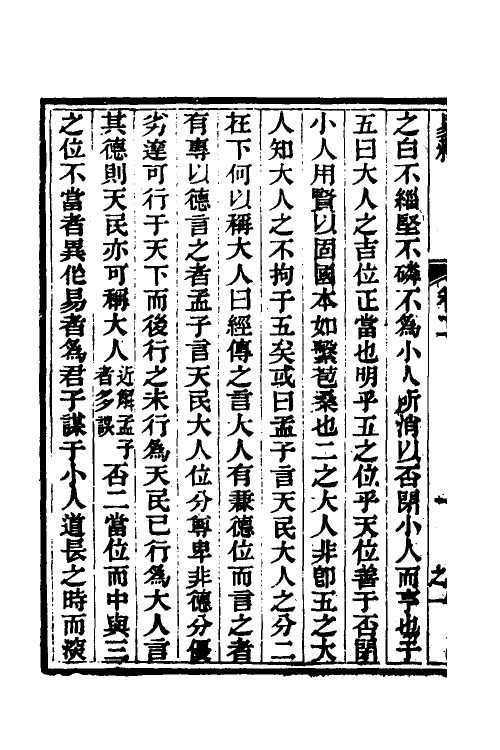 之白不緇堅不磷不為小人所消以否閉小人而亨也子
五曰大人之吉位正當也明乎五之位乎天位善于否閉
小人用賢以固國本如繫苞桑也二之大人非卽五之大
人知大人之不拘于五矣或曰孟子言天民大人之分二
在下何以稱大人曰經傳之言大人有兼德位而言之者
有專以德言之者孟子言天民大人位分尊卑非德分優
劣達可行于天下而後行之未行為天民已行為大人言
其德則天民亦可稱大人近解孟子者多誤否二當位而中與三
之位不當者異作易者為君子謀于小人道長之時而深